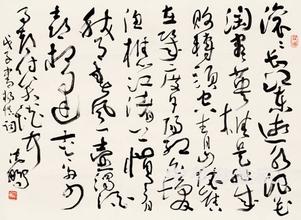 滚滚长江东逝水浪花
淘尽英雄是非成
败转头空青山依旧
在几度夕阳红白发
渔樵江渚上惯看
秋月春风一壶浊酒
喜相逢古今多少
事都付笑谈中
戊子书杨慎词
沈鹏